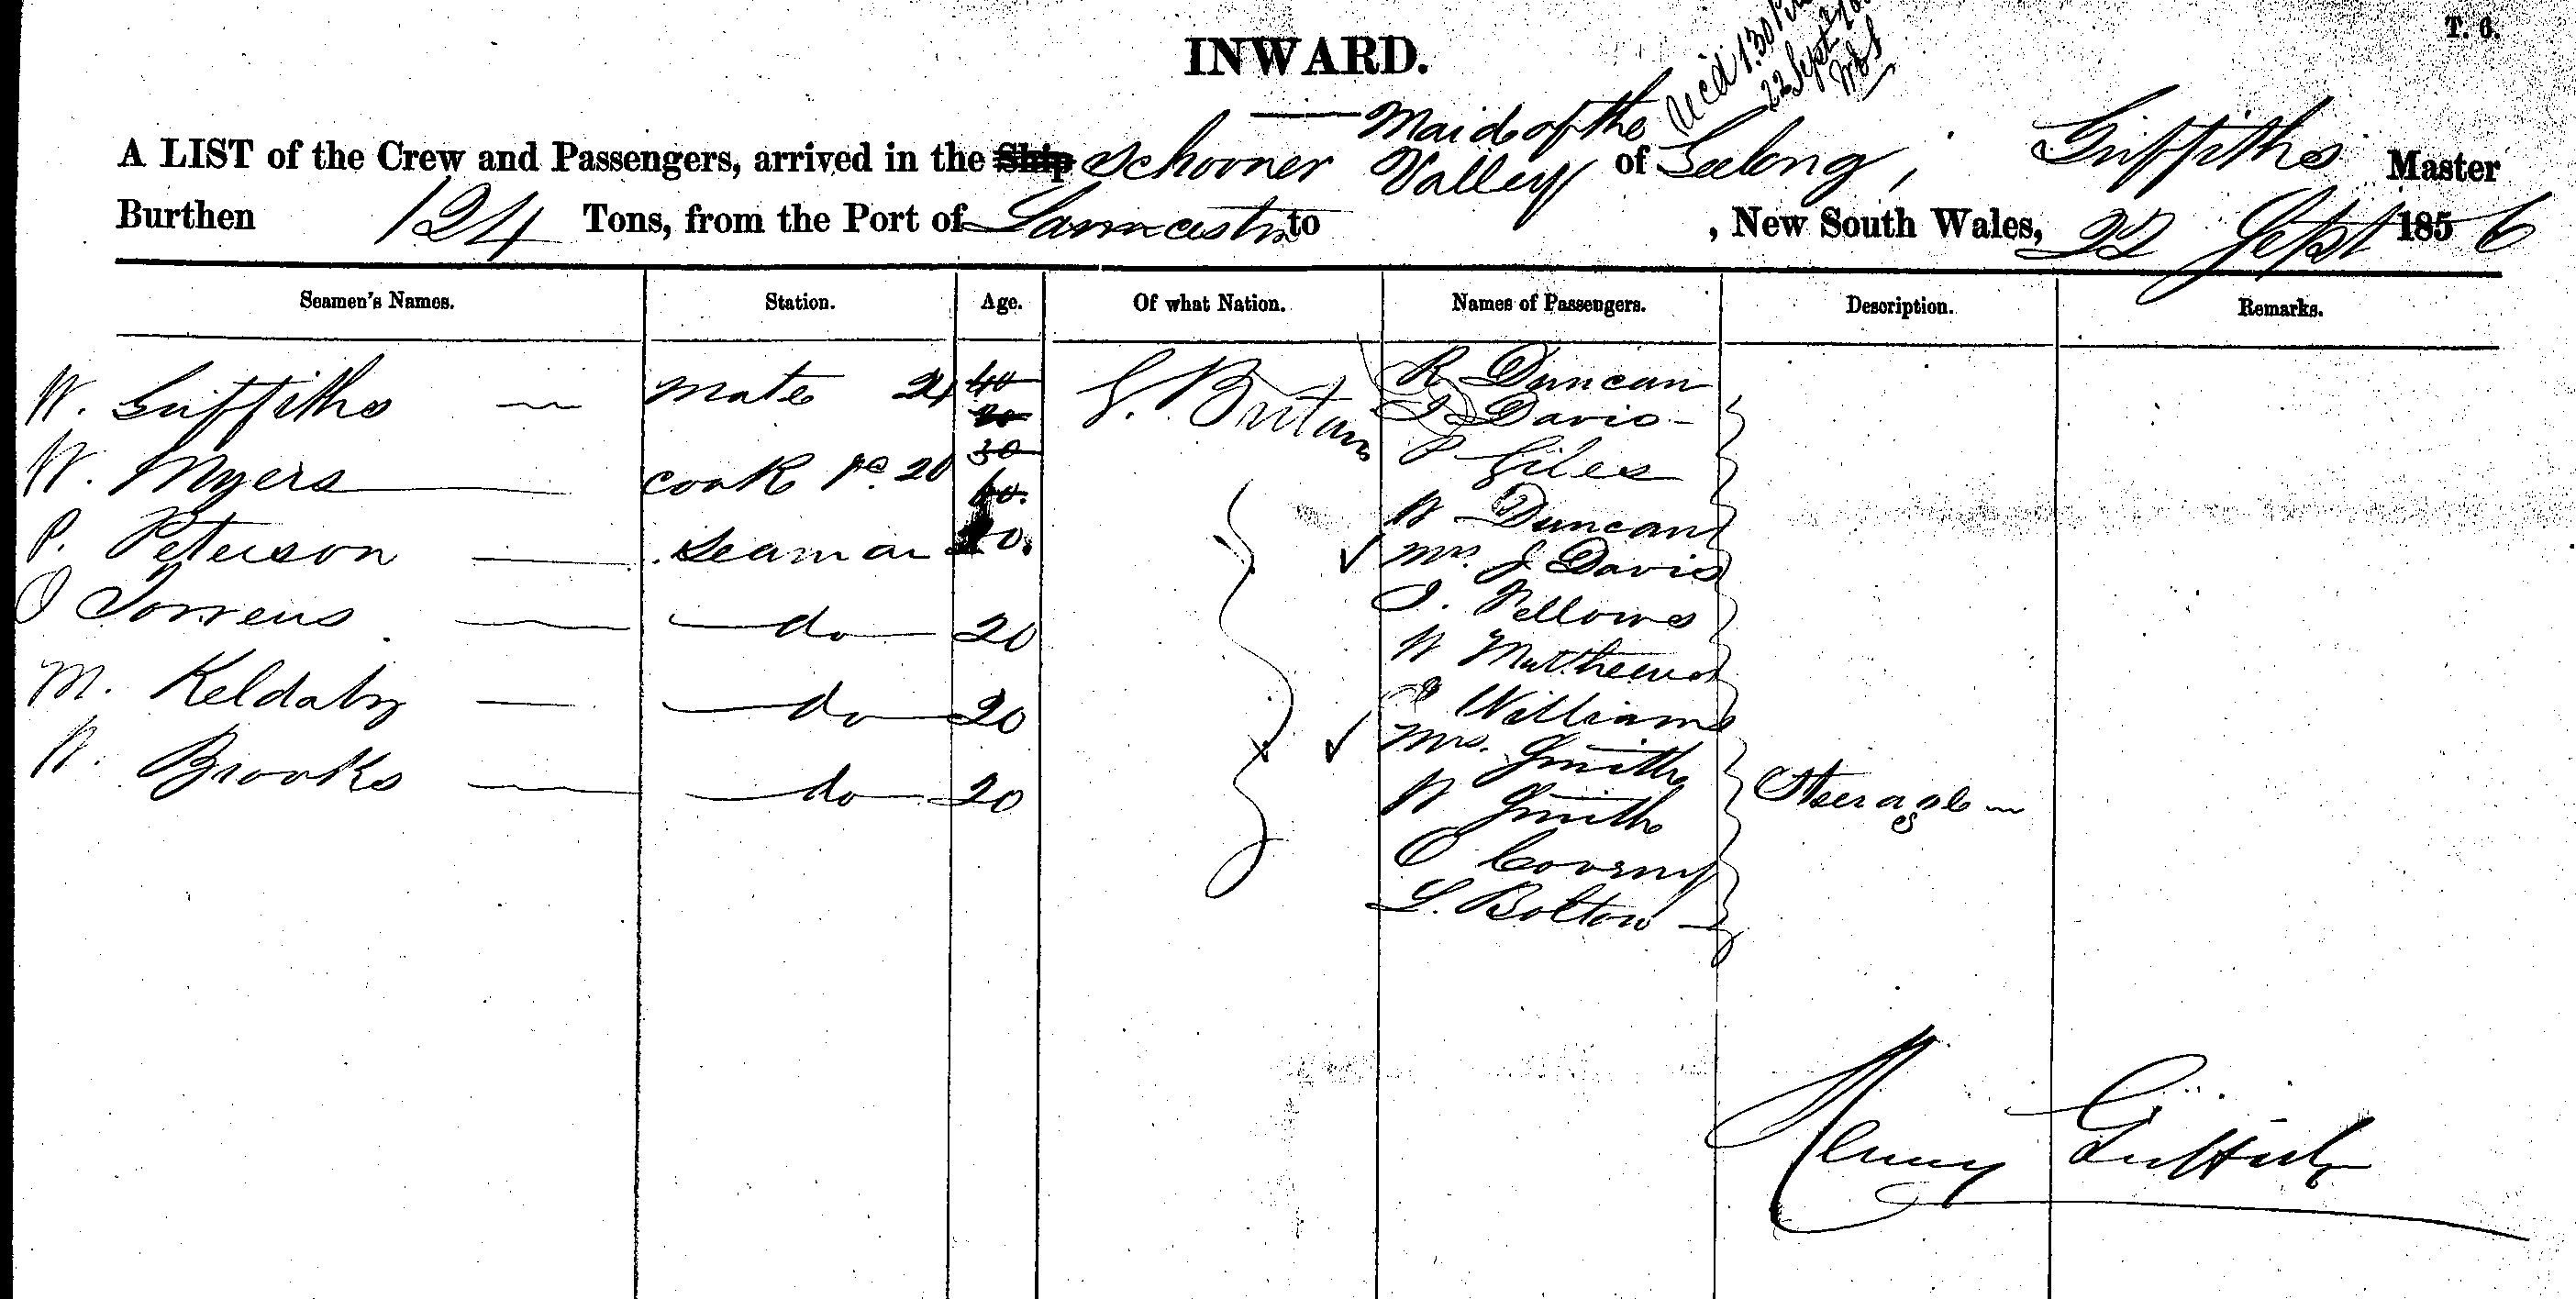 T. 6.
INWARD.
Rec'd 1.30 P.M
22 Sept
Maid of the
A LIST of the Crew and Passengers, arrived in the Ship Schooner Valley of Geelong, Griffiths Master
Burthen 124 Tons, from the Port of Launceston to , New South Wales, 22 Sept 1856
Seamen's Names. Station. Age. Of what Nation. Names of Passengers. Description. Remarks.
W. Griffiths — Mate 24 40 G. Britain R Duncan
20 J Davis -
30 P Giles
W. Myers — Cook &c. 20 60. W Duncan
P. Peterson — Seaman 20. ✓ Mrs. J Davis
J Torrens — do — 20 J. Fellows
W Matthews
M. Keldaby — do — 20 Williams
✓ Mrs. Smith
W. Brooks — do — 20 W Smith Steerage
L. Bolton
Henry Griffiths